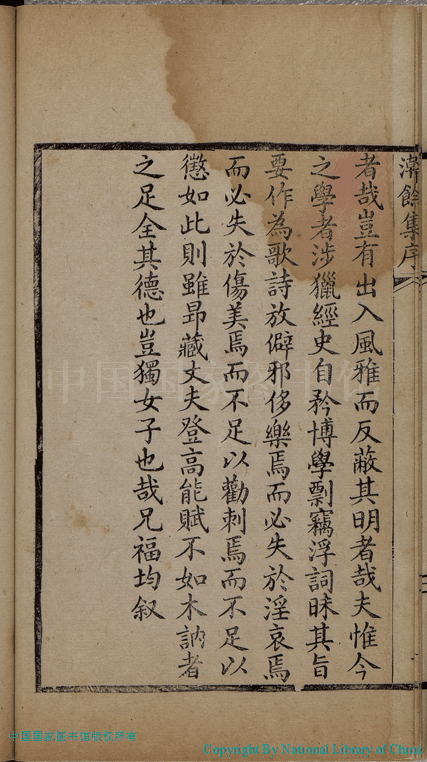 澣餘集序
者哉豈有出入風雅而反蔽其明者哉夫惟今
之學者涉獵經史自矜博學剽竊浮詞昧其旨
要作為歌詩放僻邪侈樂焉而必失於淫哀焉
而必失於傷美焉而不足以勸刺焉而不足以
懲如此則雖昻藏丈夫登高能賦不如木訥者
之足全其德也豈獨女子也哉兄福均叙
中国国家图书馆
中国国家图书馆版权所有
Copyright By National Library of China